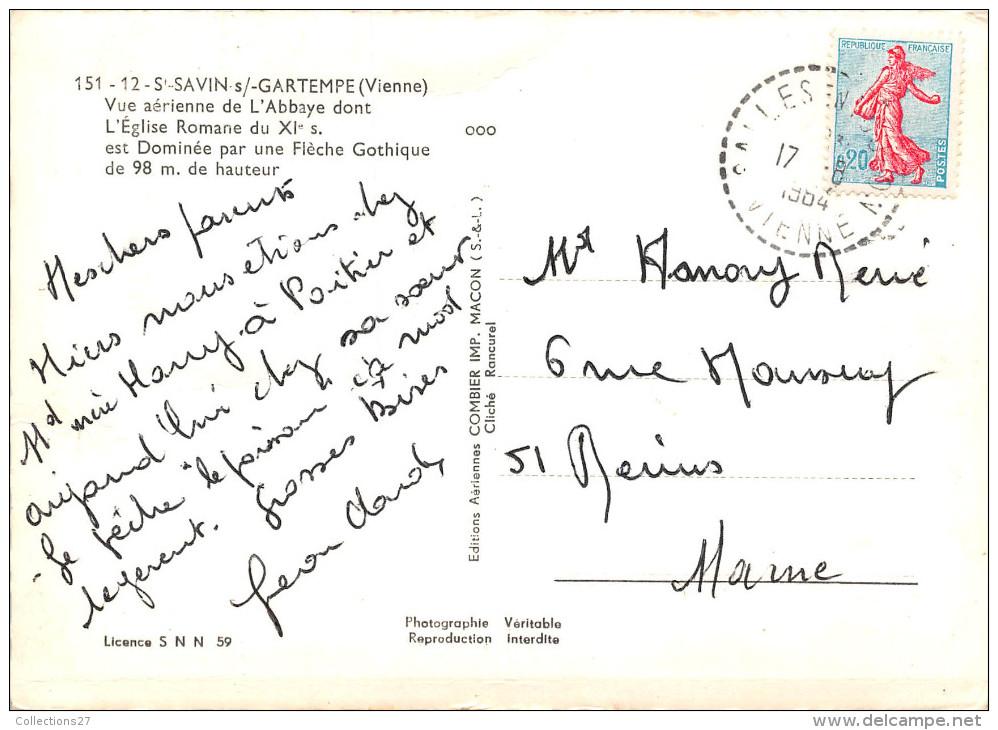 151 - 12 - St-SAVIN-s/-GARTEMPE (Vienne)
Vue aérienne de L'Abbaye dont
L'Église Romane du XIe s.
est Dominée par une Flèche Gothique
de 98 m. de hauteur
ooo
Meschers parents
Hiers nous etions chez
Md mère Hanry à Poitier et
aujourd'hui chez sa sœur
Je pêche le poisson, ça mord
legerent. Grosses Bises
Jean claude
Editions Aériennes COMBIER IMP. MACON (S.-&-L.)
Cliché Rancurel
REPUBLIQUE FRANÇAISE
0,20
POSTES
17
1964
VIENNE
Mr Hanory René
6 rue
51 Reims
Marne
Photographie Véritable
Reproduction Interdite
Licence S N N 59
Collections27
delcampe.net